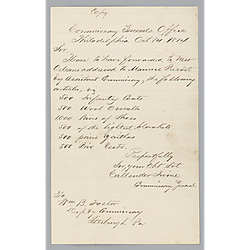 Copy
Commissary Generals Office
Philadelphia Oct 14 1814
Sir
Please to have forwarded to New
Orleans addressed to
Assistant Commissary, the following
articles, viz
500 Infantry Coats
500 Wool Overalls
1000 Pairs of Shoes
500 of the lightest blankets
500 pairs Gaiters
500 Vests
Respectfully
Sir, your Obt Svt
Callender Irvine
Commissary General
To
Wm B. Foster
Deputy Commissary
Pittsburgh Pa